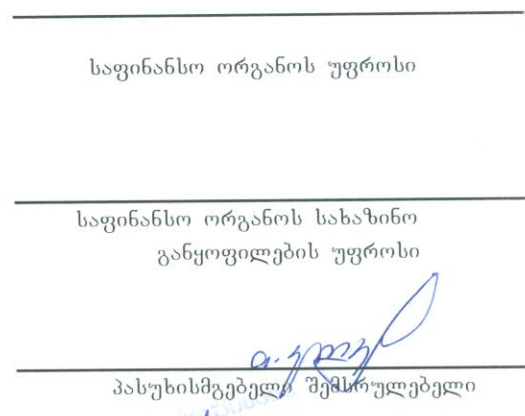 საფინანსო ორგანოს უფროსი
საფინანსო ორგანოს სახაზინო
განყოფილების უფროსი
პასუხისმგებელი შემსრულებელი